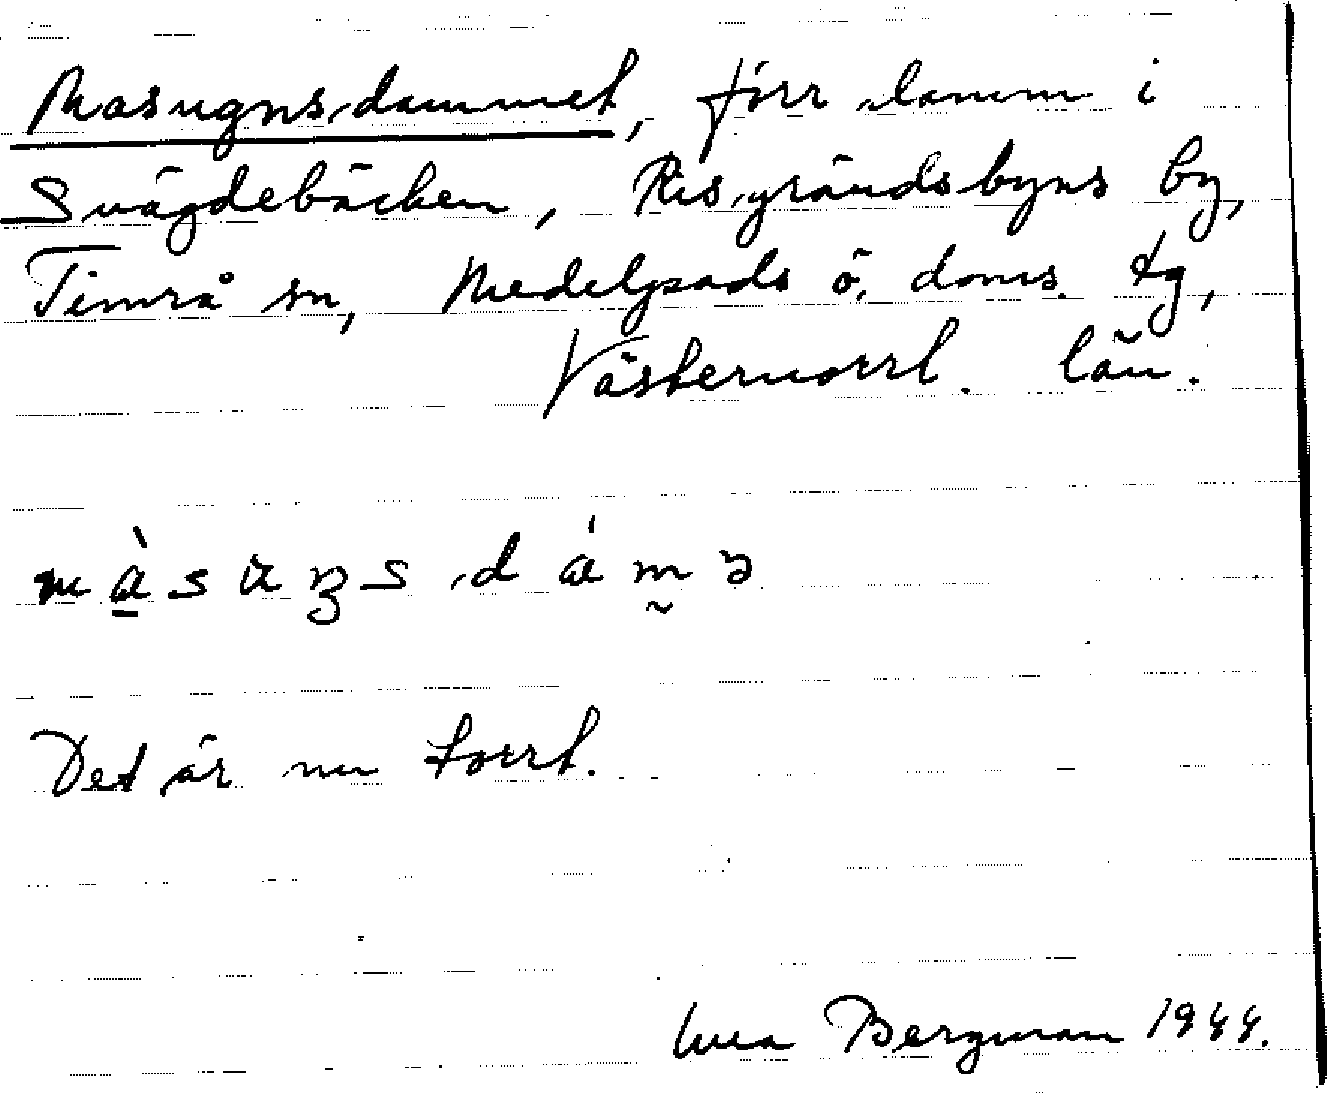 Masugnsdammet, förr damm i
Svägdebäcken, Risgrändsbyns by,
Timrå sn, Medelpads ö. doms. tg,
Västernorrl. län.
Det är nu torrt.
Bergman 1944.